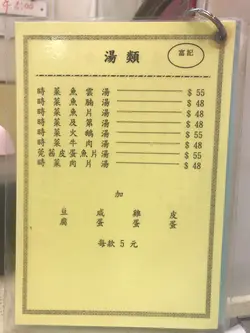 湯類
富記
時菜魚雲湯 $55
時菜魚腩湯 $48
時菜魚片湯 $48
時菜及第湯 $48
時菜火鴨湯 $55
時菜牛肉湯 $48
芫茜皮蛋魚片湯 $55
時菜肉片湯 $48
加
豆腐 咸蛋 雞蛋 皮蛋
每款5元